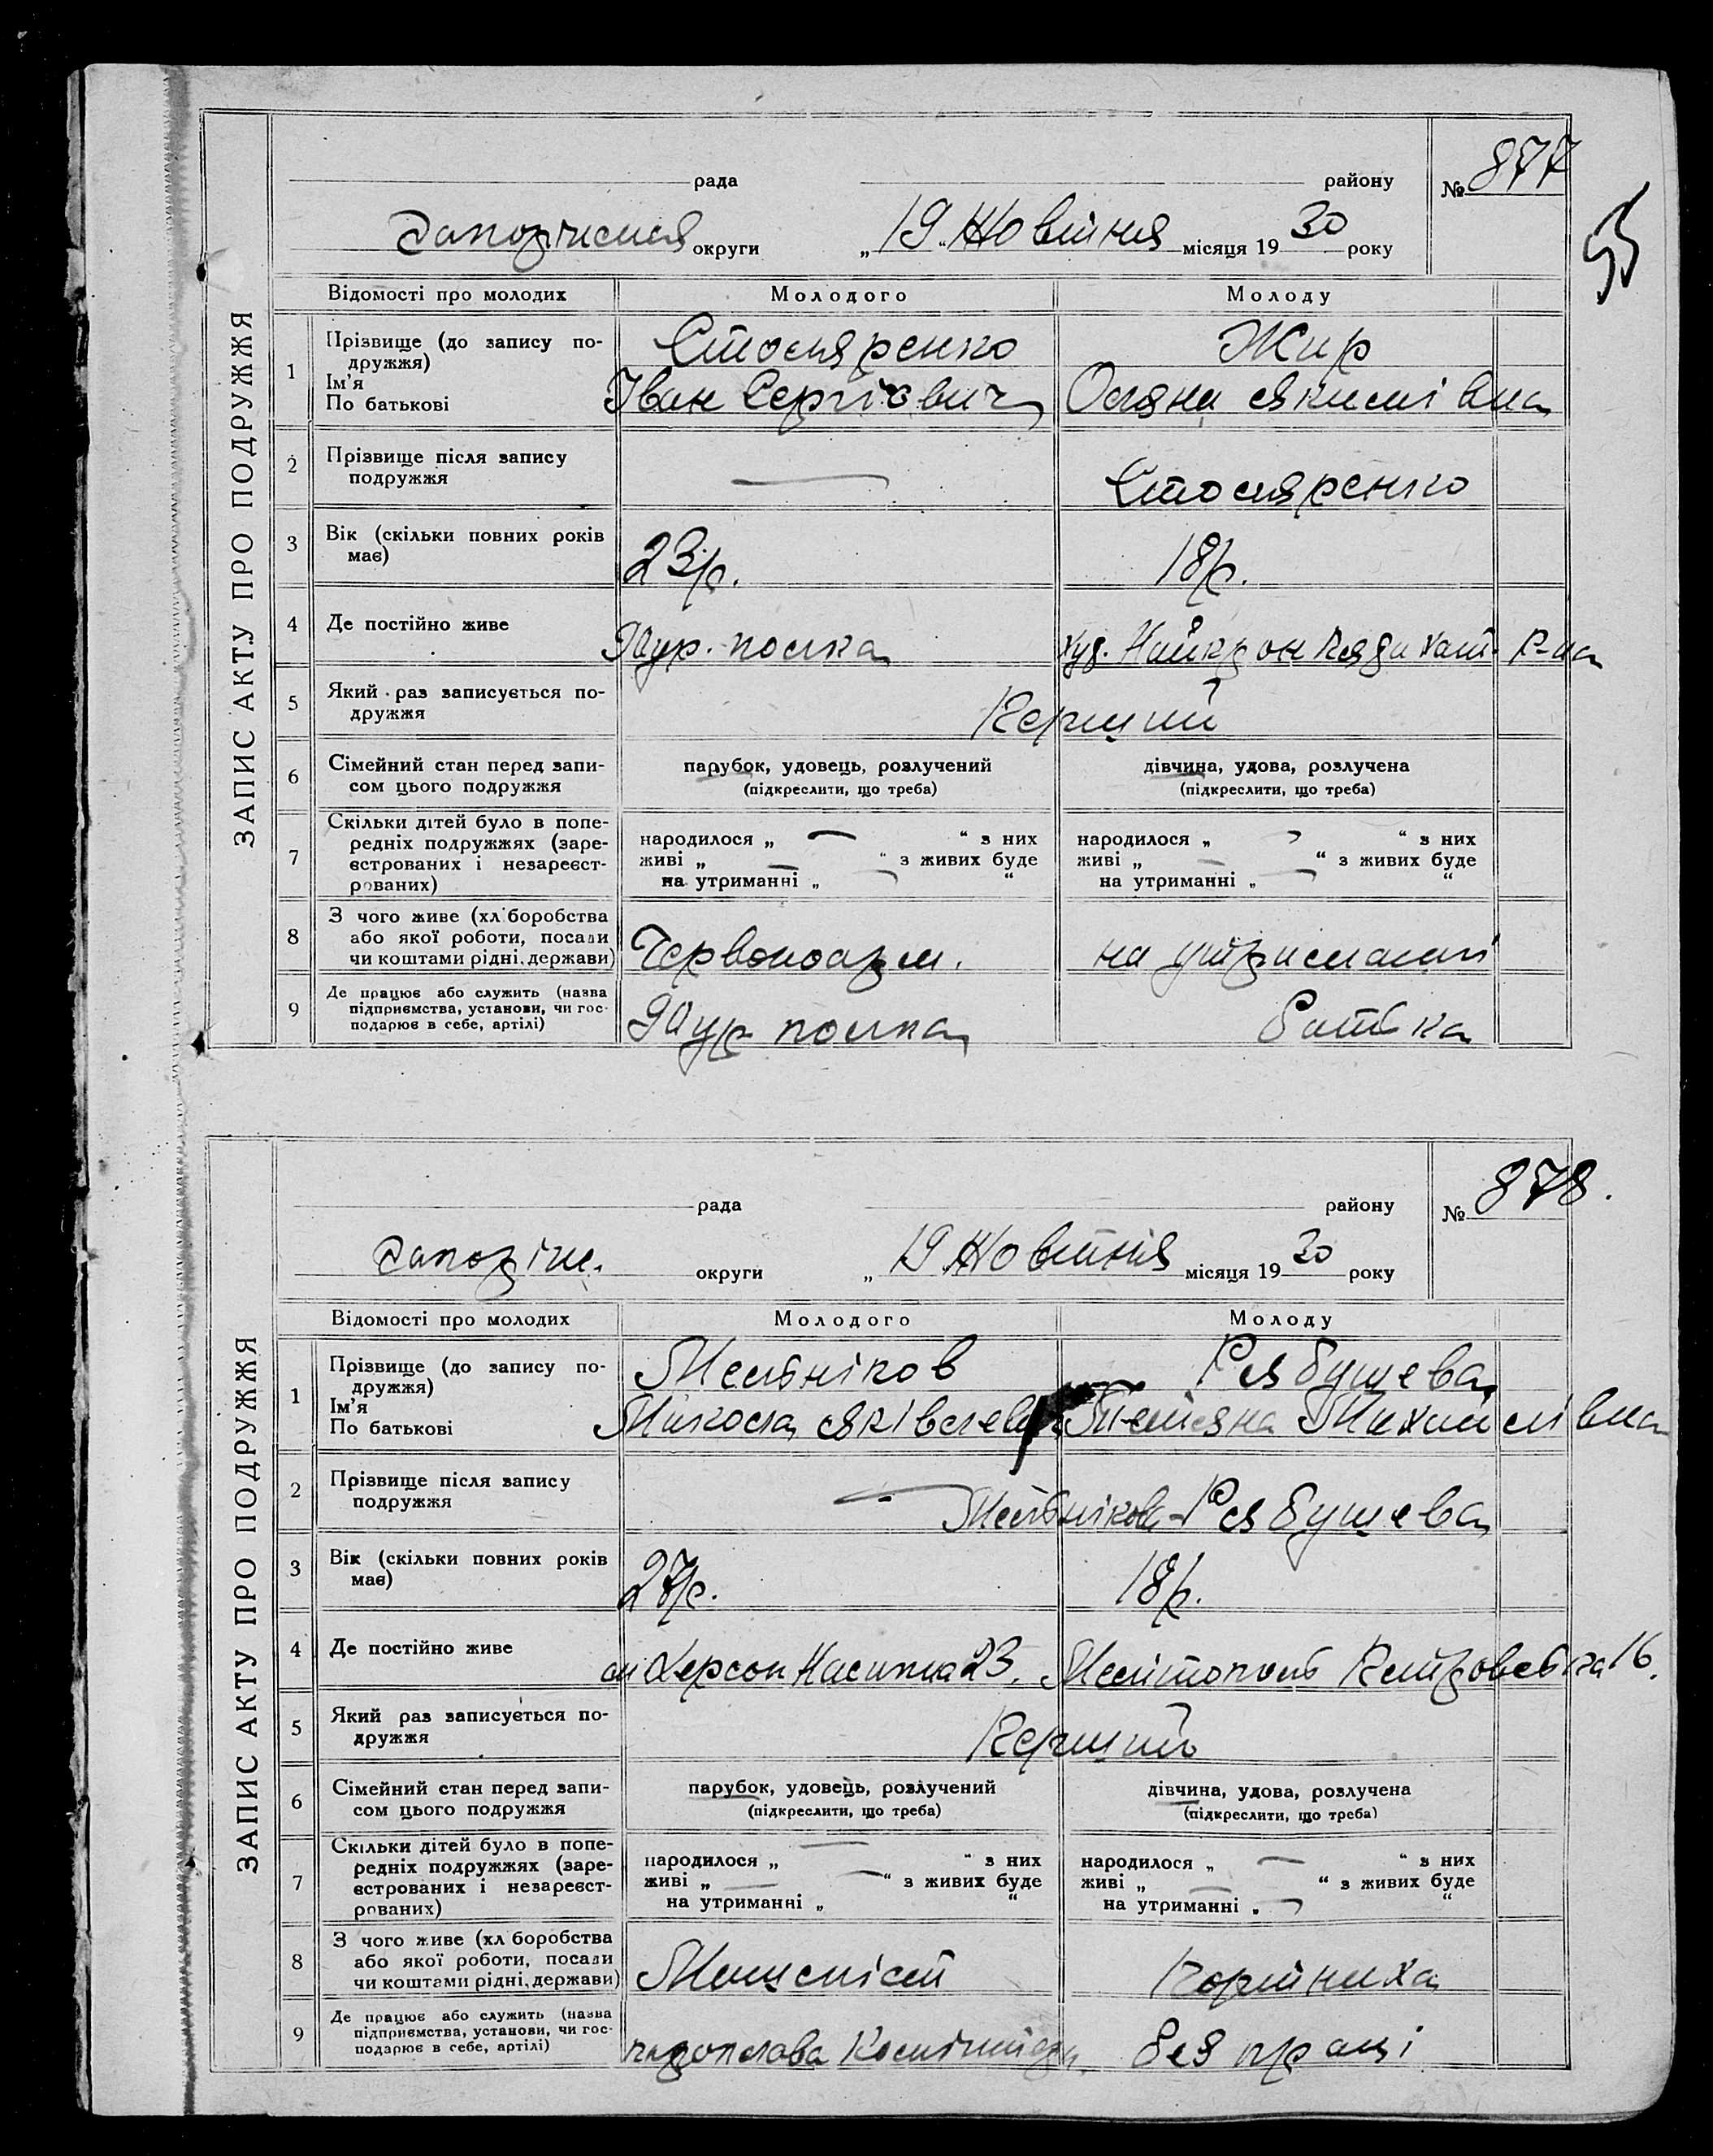 ЗАПИС АКТУ ПРО ПОДРУЖЖЯ
рада району № 877
55
округи „19“ Жовтня місяця 1930 року
Відомості про молодих Молодого Молоду
1 Прізвище (до запису подружжя) Столяренко Жир
Ім'я
По батькові Іван Сергієвич Оляна Якимівна
2 Прізвище після запису
подружжя — Столяренко
3 Вік (скільки повних років
має) 23 р. 18 р.
4 Де постійно живе полка хут.
5 Який раз записується по-
дружжя Перший
6 Сімейний стан перед запи- парубок, удовець, розлучений дівчина, удова, розлучена
сом цього подружжя (підкреслити, що треба) (підкреслити, що треба)
7 Скільки дітей було в попе-
редніх подружжях (заре- народилося „ — “ з них народилося „ — “ з них
єстрованих і незареєст- живі „ — “ з живих буде живі „ — “ з живих буде
рованих) на утриманні „ — “ на утриманні „ — “
8 З чого живе (хліборобства
або якої роботи, посади
чи коштами рідні, держави) Червоноарм. на утриманні
9 Де працює або служить (назва
підприємства, установи, чи гос-
подарює в себе, артілі) полка батька
ЗАПИС АКТУ ПРО ПОДРУЖЖЯ
рада району № 878.
Запоріж. округи „19 Жовтня місяця 1930 року
Відомості про молодих Молодого Молоду
1 Прізвище (до запису по-
дружжя) Мельніков Рябушева
Ім'я
По батькові Микола Яківлевич Тетяна Михайлівна
2 Прізвище після запису
подружжя — Мельнікова-Рябушева
3 Вік (скільки повних років
має) 27 р. 18 р.
4 Де постійно живе м Херсон 23. Мелітополь 16.
5 Який раз записується по-
дружжя Перший
6 Сімейний стан перед запи- парубок, удовець, розлучений дівчина, удова, розлучена
сом цього подружжя (підкреслити, що треба) (підкреслити, що треба)
7 Скільки дітей було в попе-
редніх подружжях (заре- народилося „ — “ з них народилося „ — “ з них
єстрованих і незареєст- живі „ — “ з живих буде живі „ — “ з живих буде
рованих) на утриманні „ “ на утриманні „ — “
8 З чого живе (хліборобства
або якої роботи, посади
чи коштами рідні, держави) Машиніст портниха
9 Де працює або служить (назва
підприємства, установи, чи гос-
подарює в себе, артілі) без праці